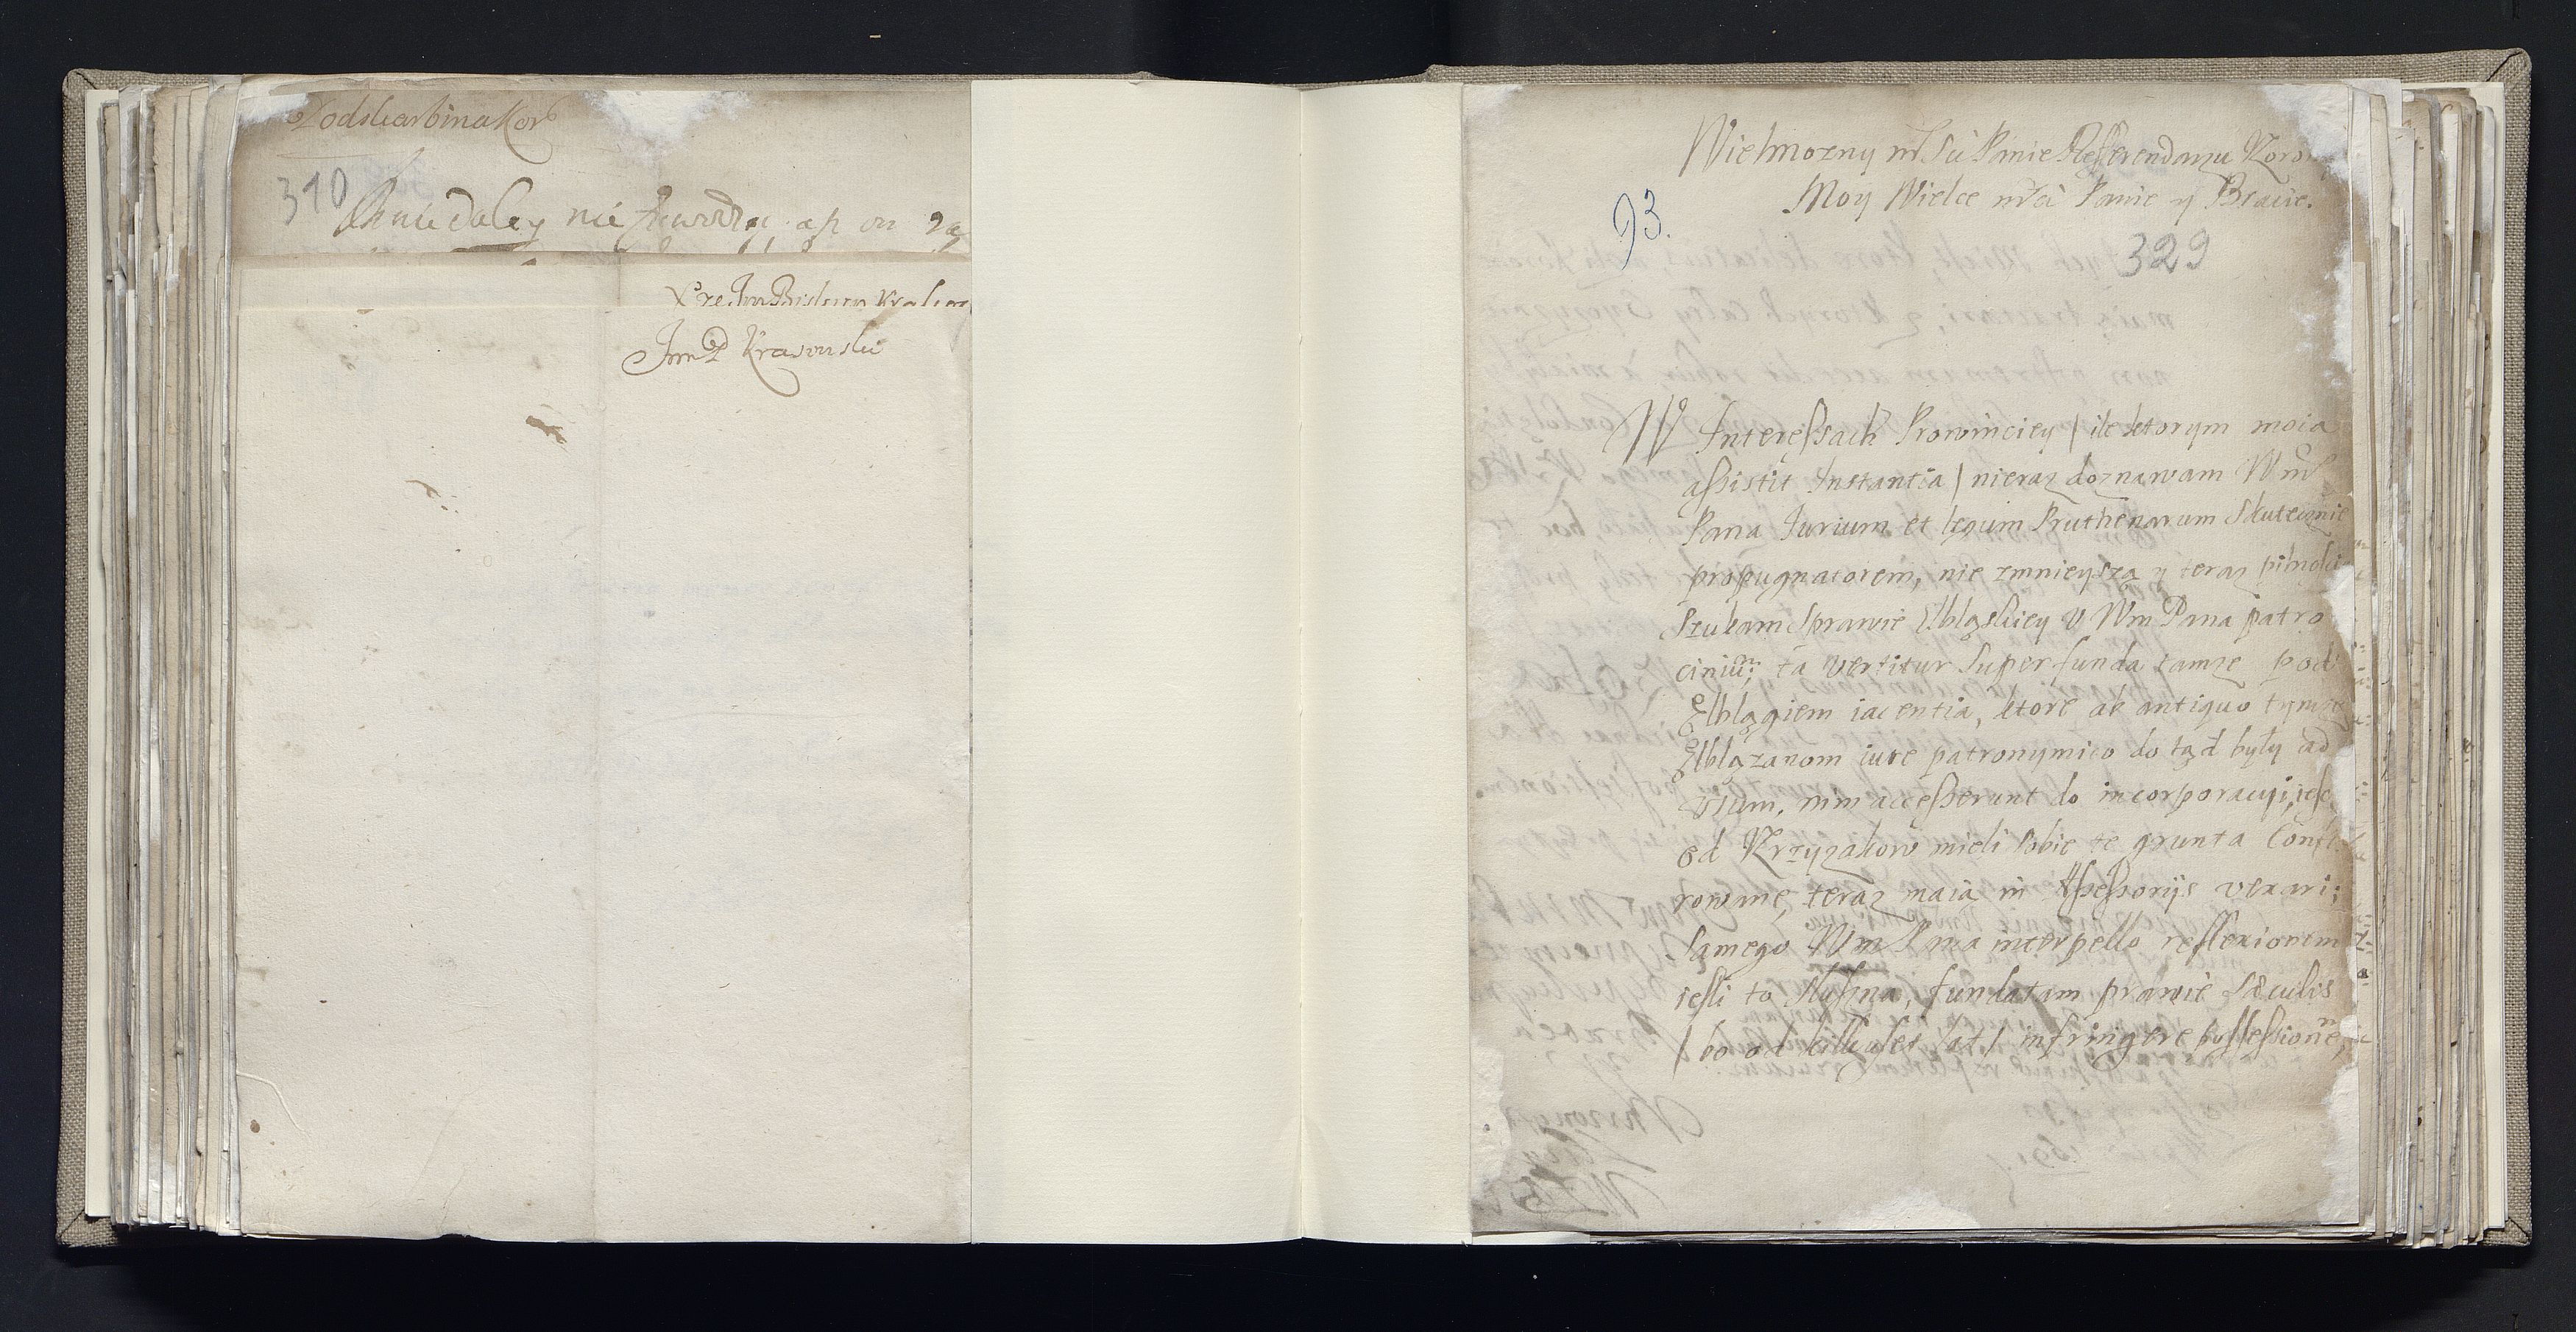 Podskarbina Kor
310
daley nie
Jm P Krasinski
Wielmozny mSci Panie Refferendarzu Koron
Moy Wielce mSci Panie y Bracie.
93.
329
W Interessach Prowinciey / ile ktorym moia
assistit Instantia / nieraz doznawam Wm
Pana Jurium et legum Pruthenarum Skutecznie
propugnatorem, nie zmnieyszą y teraz pilnośc
Szukam Sprawie Elbląskiey v Wm Pana patro
cinium; ta vertitur Super funda tamże pod
Elblągiem iacentia, ktore ab antiquo tymże
Elblązanom iure patronymico do tąd były ad
vsum, nim accesserunt do incorporacyi, iesz
od Krzyzakow mieli sobie te grunta Conf
rowane, teraz maią in Assessorijs vexari;
Samego Wm Pana interpello reflexionem
iesli to słuszna, fundatam prawie Sæculis
/ bo od kilkuset lat / infringere possessione,